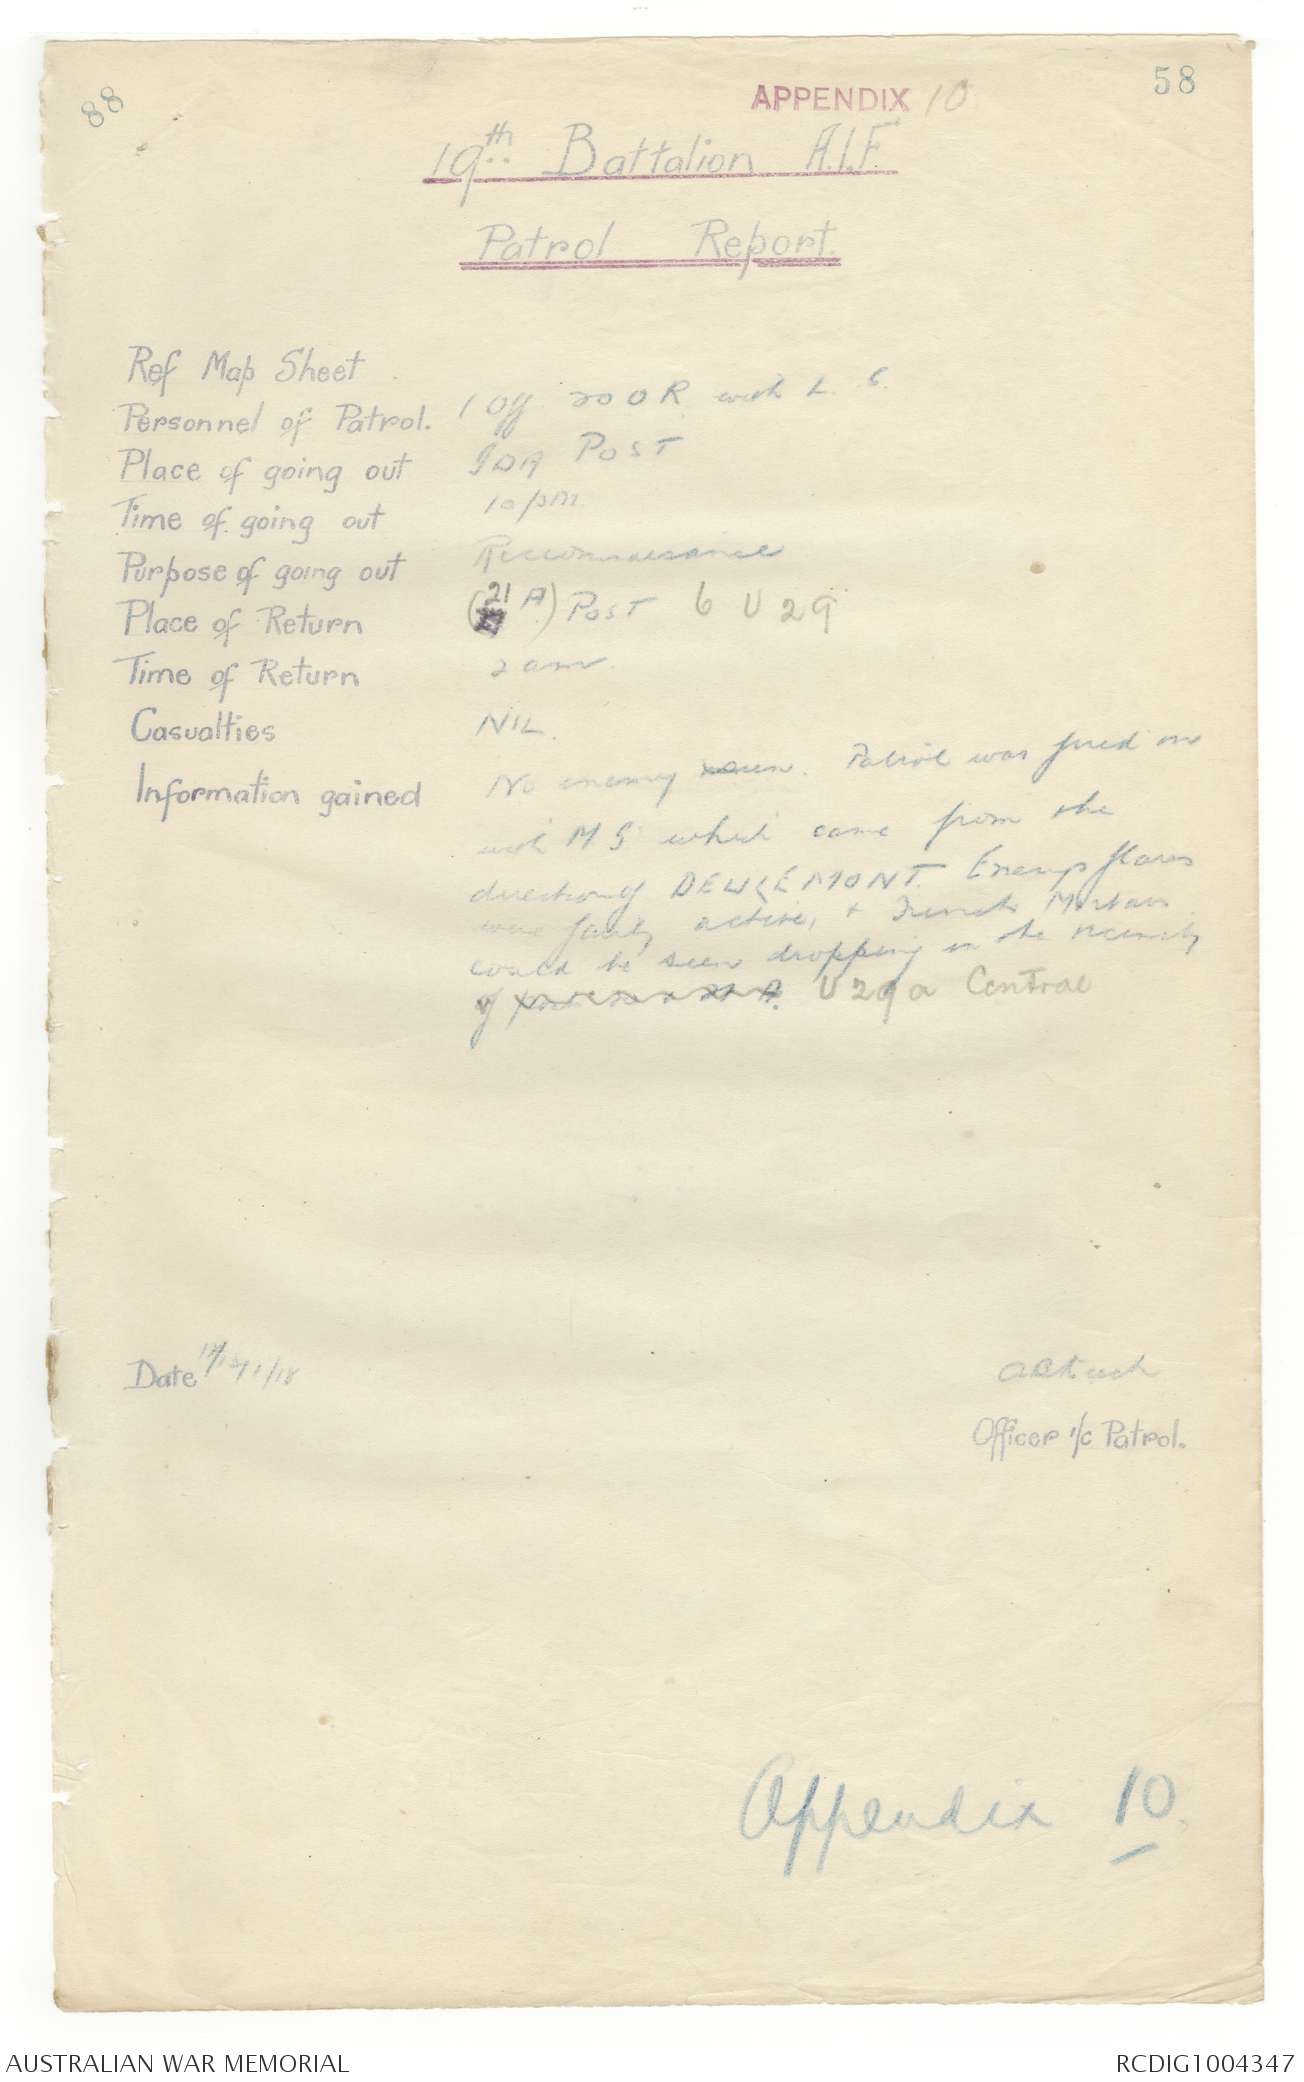 88
58
APPENDIX 10
19th Battalion A.I.F.
Patrol Report.
Ref Map Sheet
Personnel of Patrol. 1 Off 20 OR with L. G.
Place of going out IDA POST
Time of going out 10 pm
Purpose of going out Reconnaisance
Place of Return (21 A) POST 6 U 29
Time of Return 2 am.
Casualties NIL.
Information gained No enemy seen. Patrol was fired on
with M G which came from the
direction of DEULEMONT. Enemys flares
were fairly active, + Trench Mortars
could be seen dropping in the vicinity
of U 29 a Central
Date
Officer i/c Patrol.
Appendix 10.
AUSTRALIAN WAR MEMORIAL
RCDIG1004347